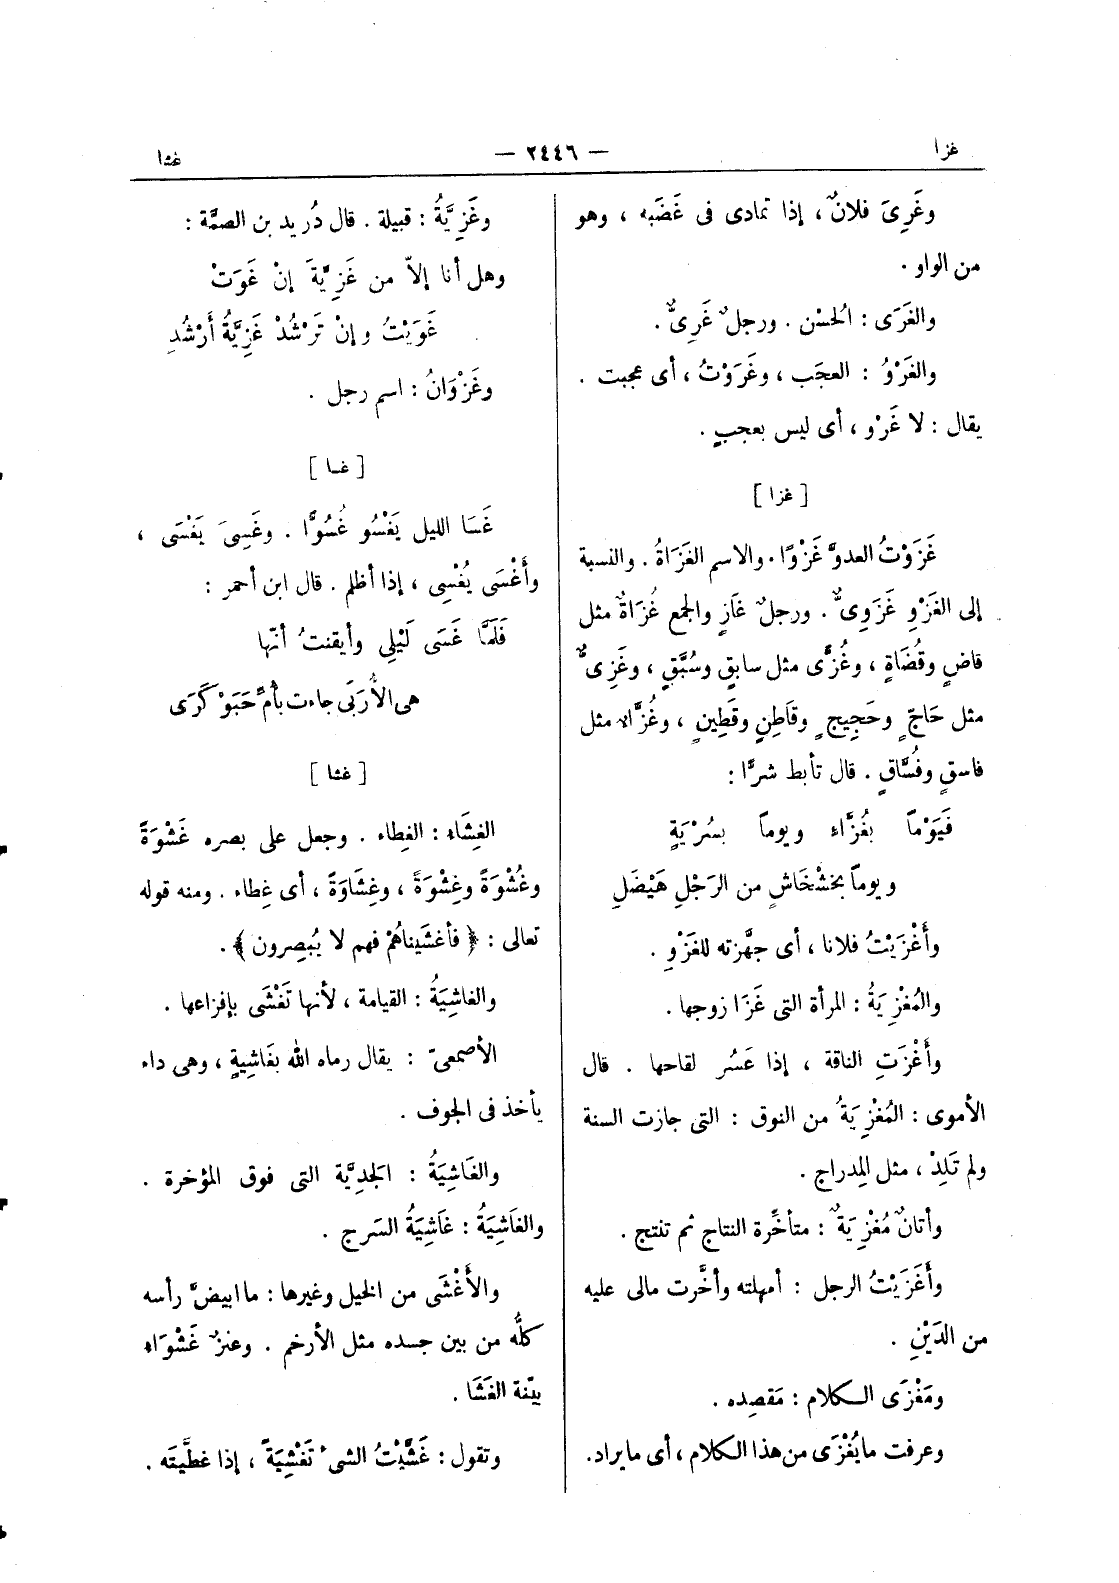 غزا
— ٢٤٤٦ —
غشا
وغَرِىَ فلانٌ ، إذا تمادى فى غَضَبه ، وهو
من الواو .
والغَرَى : الحُسْن . ورجلٌ غَرِىٌّ .
والغَرْوُ : العجَب ، وغَرَوْتُ ، أى عجبت .
يقال : لا غَرْو ، أى ليس بعجبٍ .
[ غزا ]
غَزَوْتُ العدوَّ غَزْوًا . والاسم الغَزَاةُ . والنسبة
إلى الغَزْوِ غَزَوِىٌّ . ورجلٌ غَازٍ والجمع غُزَاةٌ مثل
قاضٍ وقُضَاةٍ ، وغُزًّى مثل سابقٍ وسُبَّقٍ ، وغَزِىٌّ
مثل حَاجّ ٍ وحَجِيج ٍ وقَاطِنٍ وقَطِينٍ ، وغُزَّاءٌ مثل
فاسقٍ وفُسَّاقٍ . قال تأبط شرًّا :
فَيَوْماً بغُزَّاءٍ ويوماً بسُرْيَةٍ
ويوماً بخَشْخَاشٍ من الرَجْلِ هَيْضَلِ
وأَغْزَيْتُ فلانا ، أى جهَّزته للغَزْوِ .
والمُغْزِيَةُ : المرأة التى غَزَا زوجها .
وأَغْزَتِ الناقة ، إذا عَسُر لقاحها . قال
الأموى : المُغْزِيَةُ من النوق : التى جازت السنة
ولم تَلِدْ ، مثل المِدراج .
وأتانٌ مُغْزِيَةٌ : متأخِّرة النتاج ثم تنتج .
وأَغَزَيْتُ الرجل : أمهلته وأخَّرت مالى عليه
من الدَيْنِ .
ومَغْزَى الكلام : مَقصِده .
وعرفت ما يُغْزَى من هذا الكلام ، أى ما يراد.
وغَزِيَّةُ : قبيلة . قال دُريد بن الصمَّة :
وهل أنا إلاّ من غَزِيَّةَ إنْ غَوَتْ
غَوَيْتُ وإنْ تَرْشُدْ غَزِيَّةُ أَرْشُدِ
وغَزْوَانُ : اسم رجل .
[ غسا ]
غَسَا الليل يَغْسُو غُسُوًّا . وغَسِىَ يَغْسَى ،
وأَغْسَى يُغْسِى ، إذا أظلم . قال ابن أحمر :
فَلَمَّا غَسَى لَيْلِى وأيقنتُ أنّها
هى الأُرَبَى جاءت بأُمِّ حَبَوْكَرَى
[ غشا ]
الغِشَاء : الغِطاء . وجعل على بصره غَشْوَةً
وغُشْوَةً وغِشْوَةً ، وغِشَاوَةً ، أى غِطاء . ومنه قوله
تعالى : ﴿ فأغشَيناهُمْ فهم لا يُبصِرون ﴾ .
والغاشِيَةُ : القيامة ، لأنها تَغْشَى بإفزاعها .
الأصمعىّ : يقال رماه الله بغَاشِيةٍ ، وهى داء
يأخذ فى الجوف .
والغَاشِيَةُ : الجَدِيَّة التى فوق المؤخرة .
والغَاشِيَةُ : غَاشِيَةُ السَرج .
والأَغْشَى من الخيل وغيرها : ما ابيضَّ رأسه
كلُّه من بين جسده مثل الأرخم . وعنزٌ غَشْوَاء
بيِّنة الغَشَا .
وتقول : غَشَّيْتُ الشىءَ تَغْشِيَةً ، إذا غطَّيتَه .